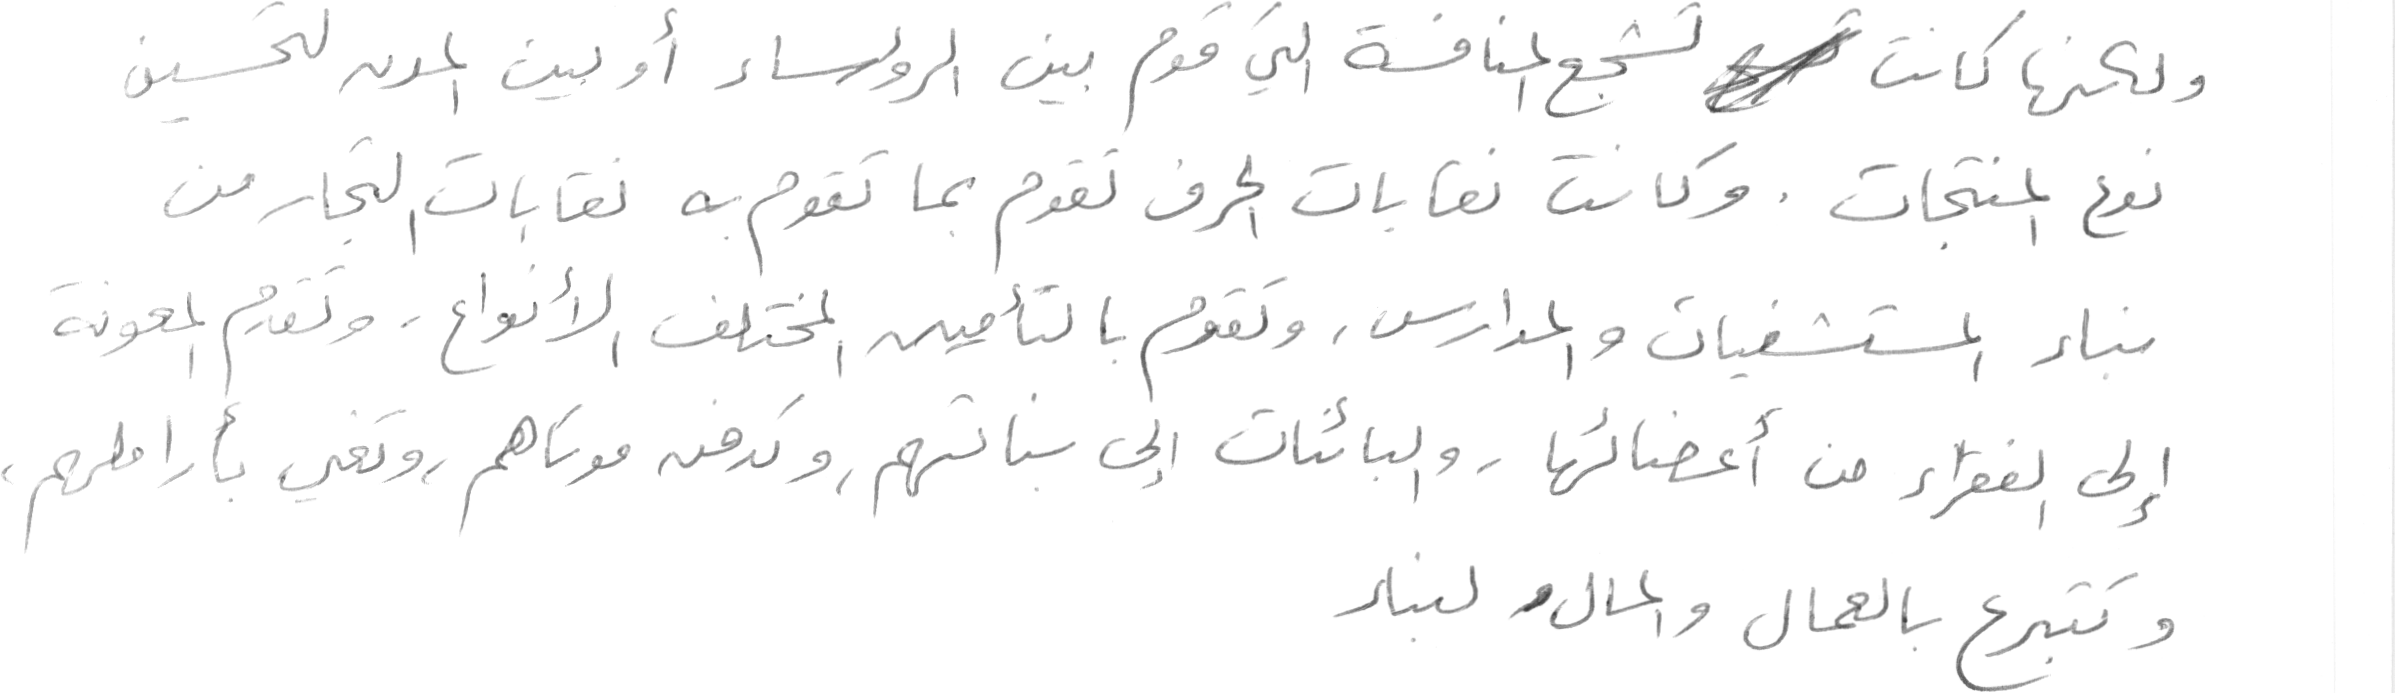 ولكنها كانت تشجع المنافسة التي تقوم بين الرؤساء أو بين المدن لتحسين
نوع المنتجات . وكانت نقابات الحرف تقوم بما تقوم به نقابات التجار من
بناء المستشفيات والمدارس، وتقوم بالتأمين المختلف الأنواع، وتقدم المعونة
إلى الفقراء من أعضائها، والبائنات إلى بناتهم، وتدفن موتاهم، وتعني بأراملهم،
وتتبرع بالعمال والمال لبناء